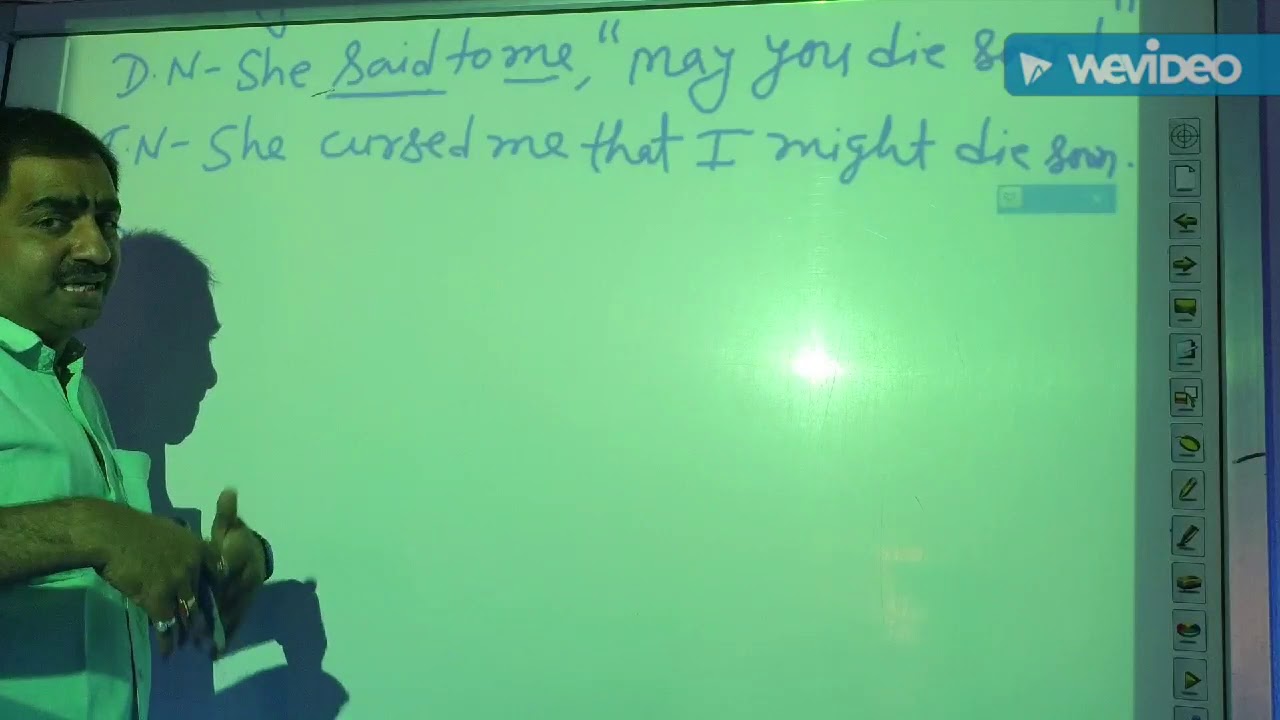 D.N- She said to me, "may you die
WEVIDEO
.N- She cursed me that I might die soon.